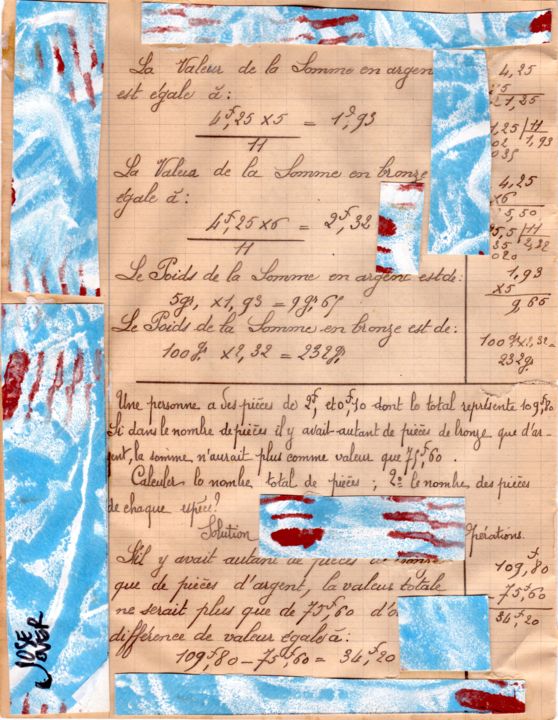 La Valeur de la Somme en argen
est égale à:
4f,25 × 5 / 11 = 1f,93
La Valeur de la Somme en bronze
égale à:
4f,25 × 6 / 11 = 2f,32
Le Poids de la Somme en argent est de:
5gr, × 1,93 = 9gr,65
Le Poids de la Somme en bronze est de:
100gr × 2,32 = 232gr
4,25
5
21,25
1,25 | 11
02 1,93
035
4,25
×6
5,50
5,5 | 11
35 2,32
020
1,93
×5
9,65
100gr × 2,32=
232gr
Une personne a des pièces de 2f, et 0f,10 dont le total représente 109f,80
Si dans le nombre de pièces il y avait autant de pièces de bronze que d'ar-
gent, la somme n'aurait plus comme valeur que 75f,60.
Calculer le nombre total de pièces; 2º le nombre des pièces
de chaque espèce?
Solution Opérations.
S'il y avait autant de pièces de bronze
que de pièces d'argent, la valeur totale
ne serait plus que de 75f,60 d'o
différence de valeur égale à:
109f,80 – 75f,60 = 34f,20
109,80
– 75,60
34,20
JOSE
JOVER